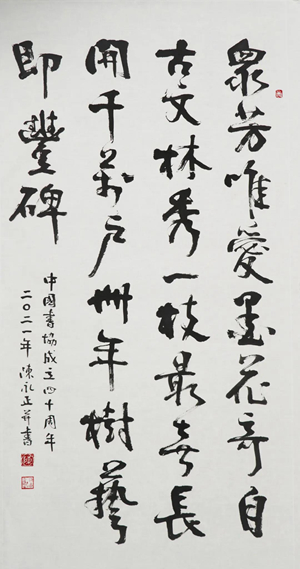 眾芳唯愛墨花奇自
古文林秀一枝最喜長
開千萬戶卌年樹藝
即豐碑
中國書協成立四十周年
二〇二一年陳永正并書